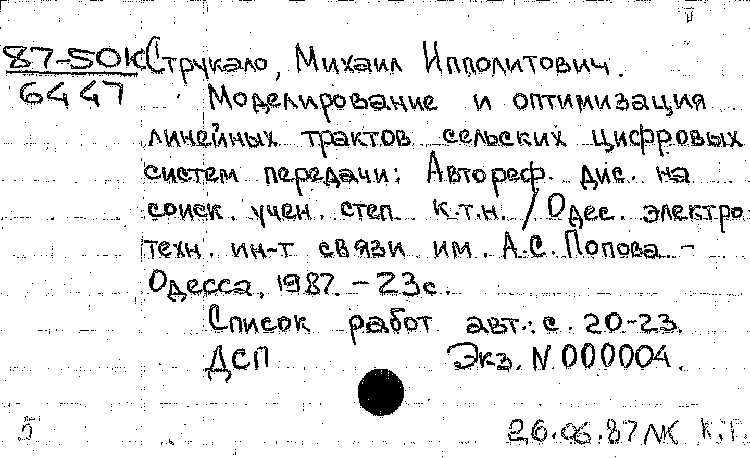 87-50К Струкало, Михаил Ипполитович.
6447 Моделирование и оптимизация
линейных трактов сельских цифровых
систем передачи: Автореф. дис. на
соиск. учен. степ. к.т.н. / Одес. электро
техн. ин-т связи им. А.С. Попова. –
Одесса, 1987. – 23с.
Список работ авт.: с. 20-23.
ДСП Экз. N 000004.
5 26.06.87 К.Г.